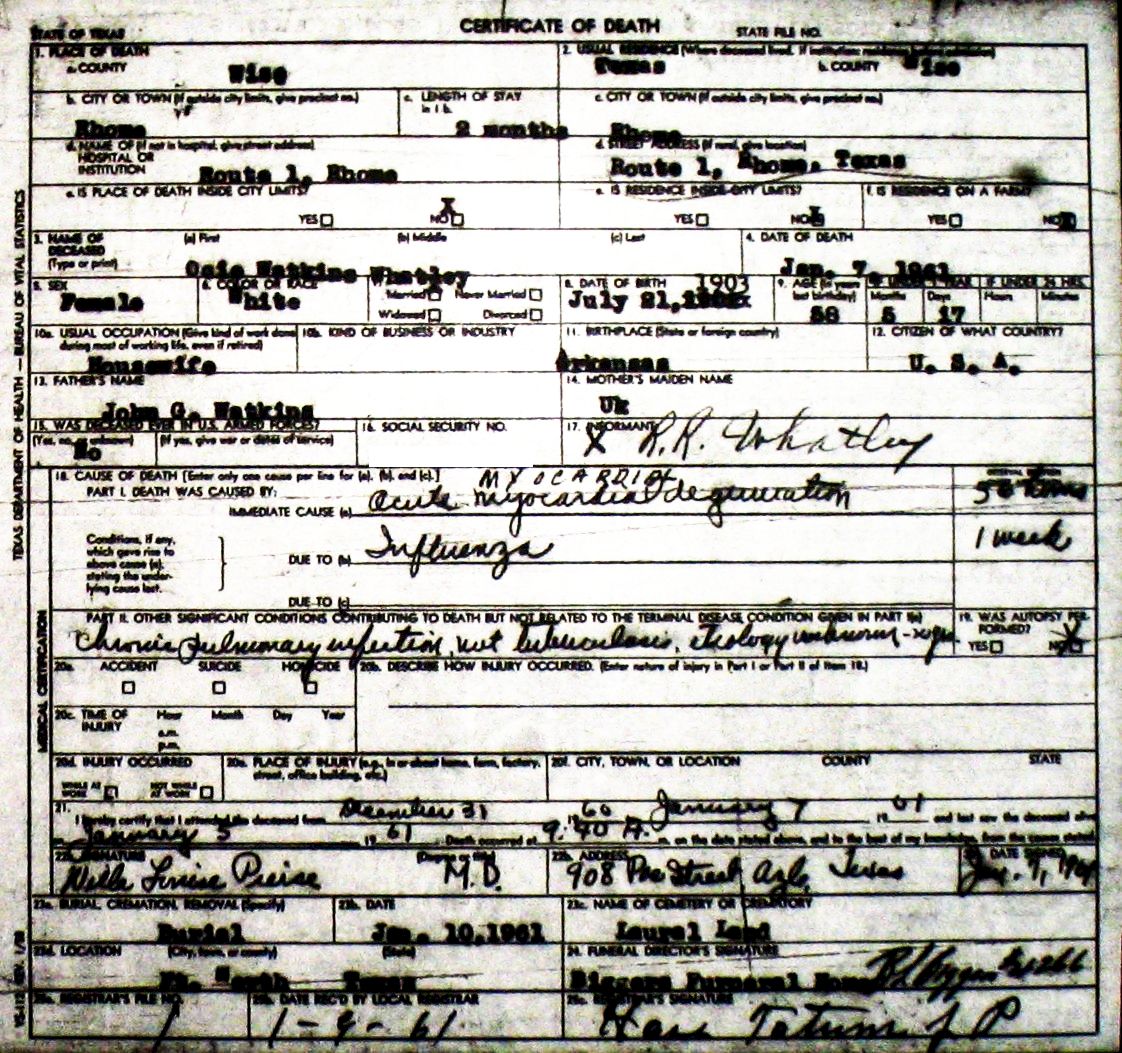 CERTIFICATE OF DEATH
STATE OF TEXAS STATE FILE NO.
1. PLACE OF DEATH 2. USUAL RESIDENCE (Where deceased lived. If institution: residence before admission)
a. COUNTY Wise Texas b. COUNTY Wise
b. CITY OR TOWN (If outside city limits, give precinct no.) c. LENGTH OF STAY in 1 b. c. CITY OR TOWN (If outside city limits, give precinct no.)
Rhome 2 months Rhome
d. NAME OF (If not in hospital, give street address) HOSPITAL OR INSTITUTION d. STREET ADDRESS (If rural, give location)
Route 1, Rhome Route 1, Rhome, Texas
e. IS PLACE OF DEATH INSIDE CITY LIMITS? e. IS RESIDENCE INSIDE CITY LIMITS? f. IS RESIDENCE ON A FARM?
YES NO X YES NO X YES NO X
3. NAME OF DECEASED (Type or print) (a) First (b) Middle (c) Last 4. DATE OF DEATH
Watkins Whatley Jan. 7, 1961
5. SEX 6. COLOR OR RACE Married Never Married Widowed Divorced 8. DATE OF BIRTH 1903 9. AGE (In years last birthday) IF UNDER 1 YEAR IF UNDER 24 HRS.
Months Days Hours Minutes
Female White July 21, 58 5 17
10a. USUAL OCCUPATION (Give kind of work done during most of working life, even if retired) 10b. KIND OF BUSINESS OR INDUSTRY 11. BIRTHPLACE (State or foreign country) 12. CITIZEN OF WHAT COUNTRY?
Housewife Arkansas U. S. A.
13. FATHER'S NAME 14. MOTHER'S MAIDEN NAME
John G. Watkins Uk
15. WAS DECEASED EVER IN U.S. ARMED FORCES? 16. SOCIAL SECURITY NO. 17. INFORMANT
(Yes, no, or unknown) (If yes, give war or dates of service)
No X R.R. Whatley
18. CAUSE OF DEATH [Enter only one cause per line for (a), (b), and (c).] MYOCARDIAL
PART I. DEATH WAS CAUSED BY:
IMMEDIATE CAUSE (a) Acute myocardial degeneration
Conditions, if any, which gave rise to above cause (a), stating the under-lying cause last.
DUE TO (b) Influenza 1 week
DUE TO (c)
PART II. OTHER SIGNIFICANT CONDITIONS CONTRIBUTING TO DEATH BUT NOT RELATED TO THE TERMINAL DISEASE CONDITION GIVEN IN PART I(a) 19. WAS AUTOPSY PERFORMED?
Chronic pulmonary infection, not tuberculosis, etiology unknown YES NO X
20a. ACCIDENT SUICIDE HOMICIDE 20b. DESCRIBE HOW INJURY OCCURRED. (Enter nature of injury in Part I or Part II of item 18.)
20c. TIME OF INJURY Hour Month Day Year
a.m.
p.m.
20d. INJURY OCCURRED 20e. PLACE OF INJURY (e.g., in or about home, farm, factory, street, office building, etc.) 20f. CITY, TOWN, OR LOCATION COUNTY STATE
WHILE AT WORK NOT WHILE AT WORK
21. I hereby certify that I attended the deceased from December 31 1960 January 7 19 61 and last saw the deceased alive
January 5, 19 61. Death occurred at 9:40 A. m. on the date stated above, and to the best of my knowledge, from the causes stated
22a. SIGNATURE (Degree or title) 22b. ADDRESS DATE SIGNED
Louise M.D. 908 Poe Street Azle, Texas Jan. 7, 1961
23a. BURIAL, CREMATION, REMOVAL (Specify) 23b. DATE 23c. NAME OF CEMETERY OR CREMATORY
Burial Jan. 10, 1961 Laurel Land
23d. LOCATION (City, town, or county) (State) 24. FUNERAL DIRECTOR'S SIGNATURE
Ft. Worth Texas Biggers Furneral Home
25a. REGISTRAR'S FILE NO. 25b. DATE REC'D BY LOCAL REGISTRAR 25c. REGISTRAR'S SIGNATURE
1 1-9-61 Tatum J P
TEXAS DEPARTMENT OF HEALTH — BUREAU OF VITAL STATISTICS
MEDICAL CERTIFICATION